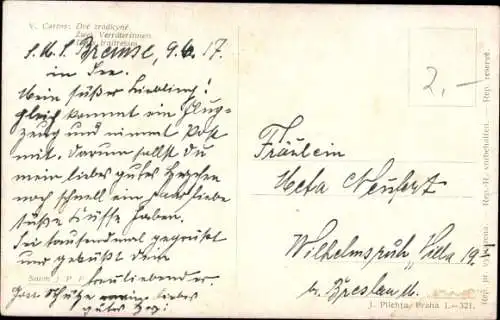 V. Čutta: Dvě zrádkyně.
Zwei Verräterinnen.
traitresses.
S.M.S. Bremse, 9.6.17.
in See.
Mein süßer Liebling!
Gleich kommt ein Flug-
zeug und nimmt Post
mit. Darum sollst du
mein liebes gutes Herzchen
noch schnell ein paar liebe
süße Küsse haben.
Sei tausendmal gegrüßt
und geküßt dein
Salon J. P. P.
treuliebender
liebes
gutes
2,-
Fräulein
Meta Neubert
Wilhelmsruh, Villa 19
b. Breslau
J. Plichta, Praha I.-321.
Rep. reservé.
Rep.-R. vorbehalten.